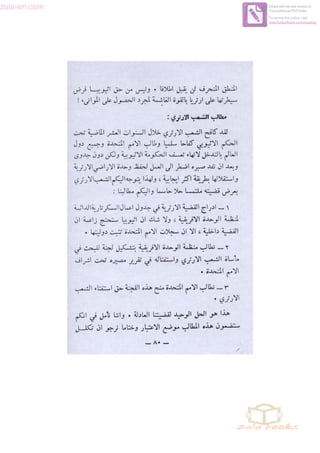 zula-eri.com
المنطق المنحرف لن يقبل اطلاقا . وليس من حق اثيوبيا فرض
سيطرتها على ارتريا بالقوة الغاشمة لمجرد الحصول على الموانىء :
مطالب الشعب الارتري :
لقد كافح الشعب الارتري خلال السنوات العشر الماضية تحت
الحكم الاثيوبي كفاحا سلميا وطالب الامم المتحدة وجميع دول
العالم بالتدخل لانهاء تعسف الحكومة الاثيوبية ولكن دون جدوى
وبعد ان نفد صبره اضطر الى العمل لحفظ وحدة الاراضي الارترية
واستقلالها بطريقة اكثر ايجابية ، ولهذا يتوجه اليكم الشعب الارتري
بعرض قضيته ملتمسا حلا حاسما واليكم مطالبنا :
١ ــ ادراج القضية الارترية في جدول اعمال السكرتارية الدائمة
لمنظمة الوحدة الافريقية ، ولا شك ان اثيوبيا ستحتج زاعمة ان
القضية داخلية ، الا ان سجلات الامم المتحدة تثبت دوليتها .
٢ ــ نطالب منظمة الوحدة الافريقية بتشكيل لجنة للبحث في
مأساة الشعب الارتري واستفتائه في تقرير مصيره تحت اشراف
الامم المتحدة .
٣ ــ نطالب الامم المتحدة منح هذه اللجنة حق استفتاء الشعب
الارتري .
هذا هو الحل الوحيد لقضيتنا العادلة . واننا نأمل في انكم
ستضعون هذه المطالب موضع الاعتبار وختاما نرجو ان تكلل
ــ ٨٠ ــ
zula books